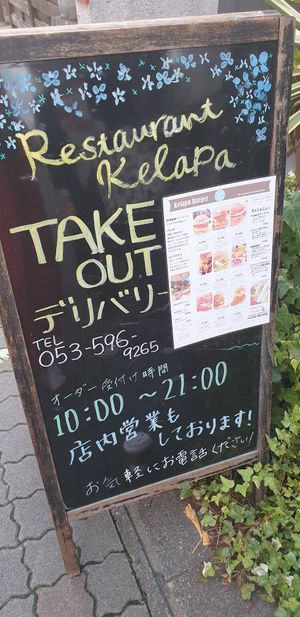 Restaurant
Kelapa
TAKE
OUT
デリバリー
TEL
053-596-
9265
Kelapa Burger
オーダー受付け時間
10:00〜21:00
店内営業も
しております!
お気軽にお電話ください!